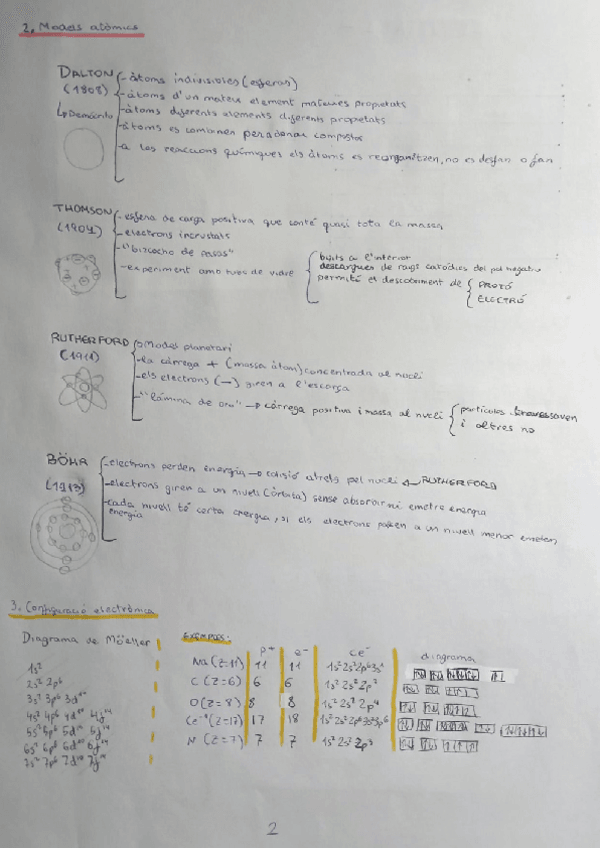 2. Models atòmics
DALTON
(1808)
↳ Demòcrito
- àtoms indivisibles (esferas)
- àtoms d'un mateix element mateixes propietats
- àtoms diferents elements diferents propietats
- àtoms es combinen per a donar compostos
- a les reaccions químiques els àtoms es reorganitzen, no es desfan o fan
THOMSON
(1904)
- esfera de carga positiva que conté quasi tota la massa
- electrons incrustats
- "bizcocho de pasas"
- experiment amb tubos de vidre
buits a l'interior
descargues de raigs catòdics del pol negatiu
permité el descobriment de
PROTÓ
ELECTRÓ
RUTHERFORD
(1911)
Model planetari
- la càrrega + (massa àtom) concentrada al nucli
- els electrons (-) giren a l'escorça
- "làmina de oro" → càrrega positiva i massa al nucli
partícules travessaven
i altres no
BÖHR
(1913)
- electrons perden energia → colisió atrets pel nucli ← RUTHERFORD
- electrons giren a un nivell (òrbita) sense absorbir ni emetre energia
- cada nivell té certa energia, si els electrons passen a un nivell menor emeten
energia
3. Configuració electrònica
Diagrama de Möeller
1s²
2s² 2p⁶
3s² 3p⁶ 3d¹⁰
4s² 4p⁶ 4d¹⁰ 4f¹⁴
5s² 5p⁶ 5d¹⁰ 5f¹⁴
6s² 6p⁶ 6d¹⁰ 6f¹⁴
7s² 7p⁶ 7d¹⁰ 7f¹⁴
EXEMPLES:
p⁺ e⁻ ce⁻ diagrama
Na (Z=11) 11 11 1s² 2s² 2p⁶ 3s¹
C (Z=6) 6 6 1s² 2s² 2p²
O (Z=8) 8 8 1s² 2s² 2p⁴
(Z=17) 17 18 1s² 2s² 2p⁶ 3s² 3p⁶
N (Z=7) 7 7 1s² 2s² 2p³
2